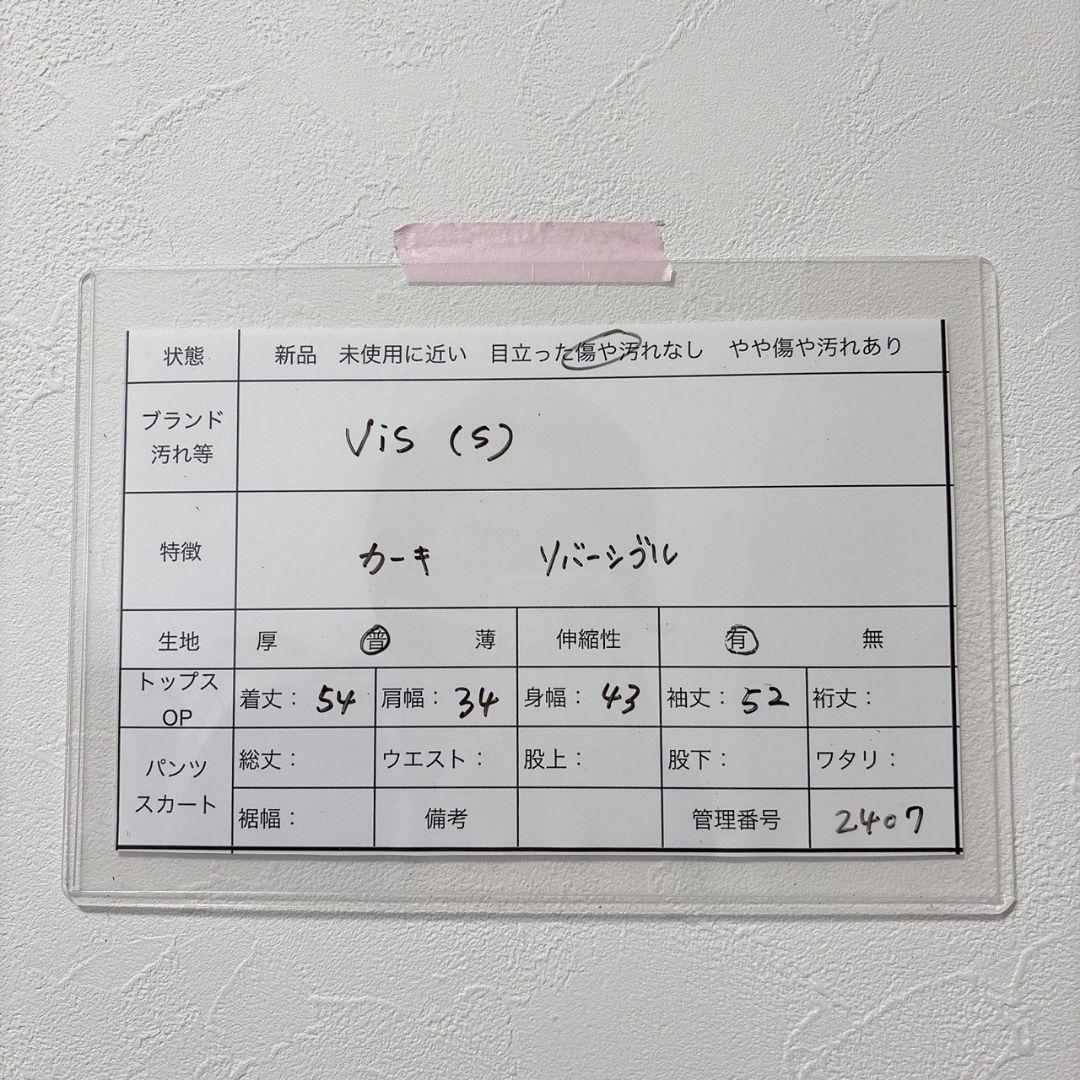 状態 新品 未使用に近い 目立った傷や汚れなし やや傷や汚れあり
ブランド
汚れ等
Vis (S)
特徴 カーキ リバーシブル
生地 厚 普 薄 伸縮性 有 無
トップス
OP
着丈: 54 肩幅: 34 身幅: 43 袖丈: 52 裄丈:
パンツ
スカート
総丈: ウエスト: 股上: 股下: ワタリ:
裾幅: 備考 管理番号 2407